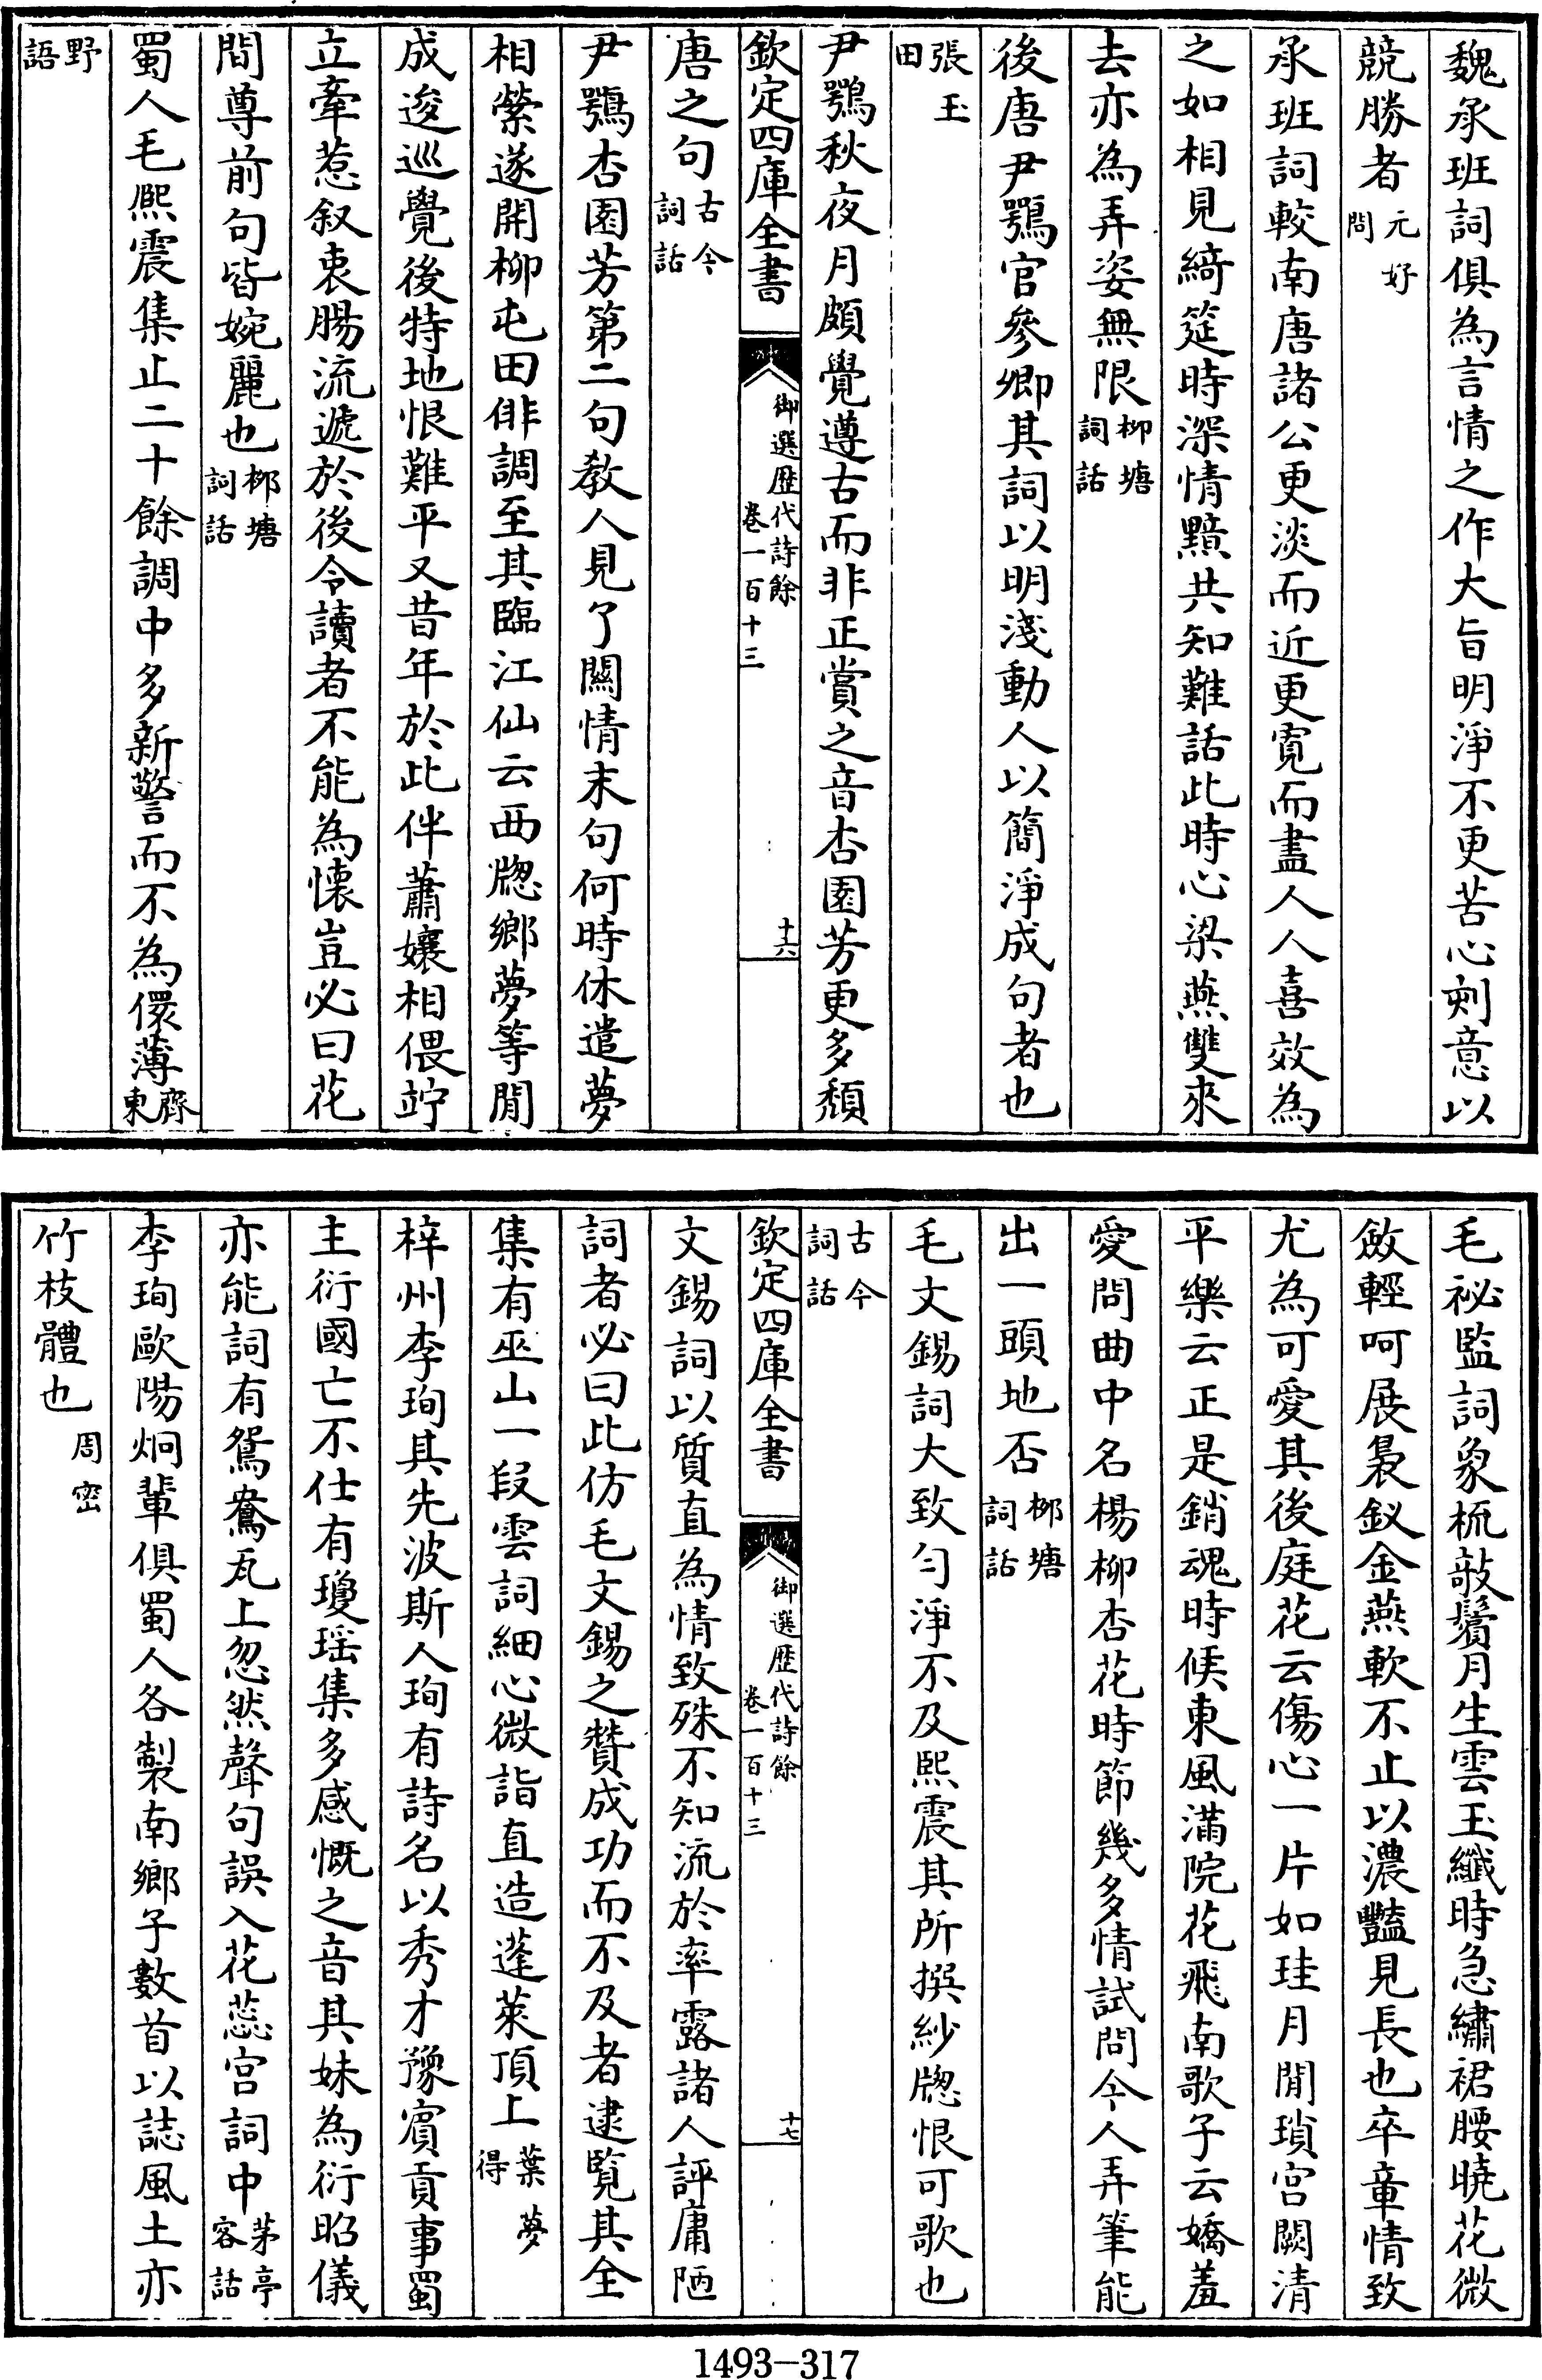 魏承班詞俱為言情之作大旨明淨不更苦心剜意以
競勝者元好問
承班詞較南唐諸公更淡而近更寛而盡人人喜效為
之如相見綺筵時深情黯共知難話此時心梁燕雙來
去亦為弄姿無限柳塘詞話
後唐尹鶚官參卿其詞以明淺動人以簡淨成句者也
張玉田
尹鶚秋夜月頗覺遵古而非正賞之音杏園芳更多頽
欽定四庫全書
御選歴代詩餘
卷一百十三
十六
唐之句古今詞話
尹鶚杏園芳第二句教人見了關情末句何時休遣夢
相縈遂開柳屯田俳調至其臨江仙云西牎鄉夢等閒
成逡巡覺後特地恨難平又昔年於此伴蕭孃相偎竚
立牽惹叙衷腸流遞於後令讀者不能為懷豈必曰花
間尊前句皆婉麗也柳塘詞話
蜀人毛熙震集止二十餘調中多新警而不為儇薄齊東
野語
毛祕監詞象梳敲鬢月生雲玉纎時急繡裙腰曉花微
斂輕呵展裊釵金燕軟不止以濃豔見長也卒章情致
尤為可愛其後庭花云傷心一片如珪月閒瑣宫闕清
平樂云正是銷魂時候東風滿院花飛南歌子云嬌羞
愛問曲中名楊柳杏花時節幾多情試問今人弄筆能
出一頭地否柳塘詞話
毛文錫詞大致匀淨不及熙震其所撰紗牎恨可歌也
古今詞話
欽定四庫全書
御選歴代詩餘
卷一百十三
十七
文錫詞以質直為情致殊不知流於率露諸人評庸陋
詞者必曰此仿毛文錫之贊成功而不及者逮覧其全
集有巫山一段雲詞細心微詣直造蓬萊頂上葉夢得
梓州李珣其先波斯人珣有詩名以秀才豫賓貢事蜀
主衍國亡不仕有瓊瑶集多感慨之音其妹為衍昭儀
亦能詞有鴛鴦瓦上忽然聲句誤入花蕊宫詞中茅亭客話
李珣歐陽炯輩俱蜀人各製南鄉子數首以誌風土亦
竹枝體也周密
1493-317